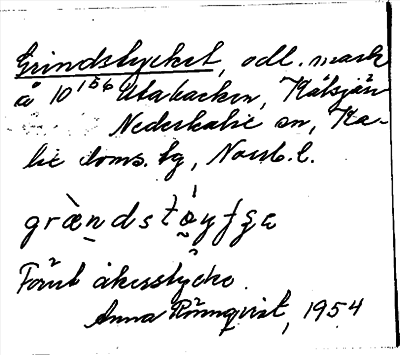 Grindstycket, odl. mark
å 10¹⁵⁶ Utabacken, Kälsjärv
Nederkalix sn, Ka-
lix doms. tg, Norrb. l.
Förut åkerstycke.
Anna Rönnqvist, 1954